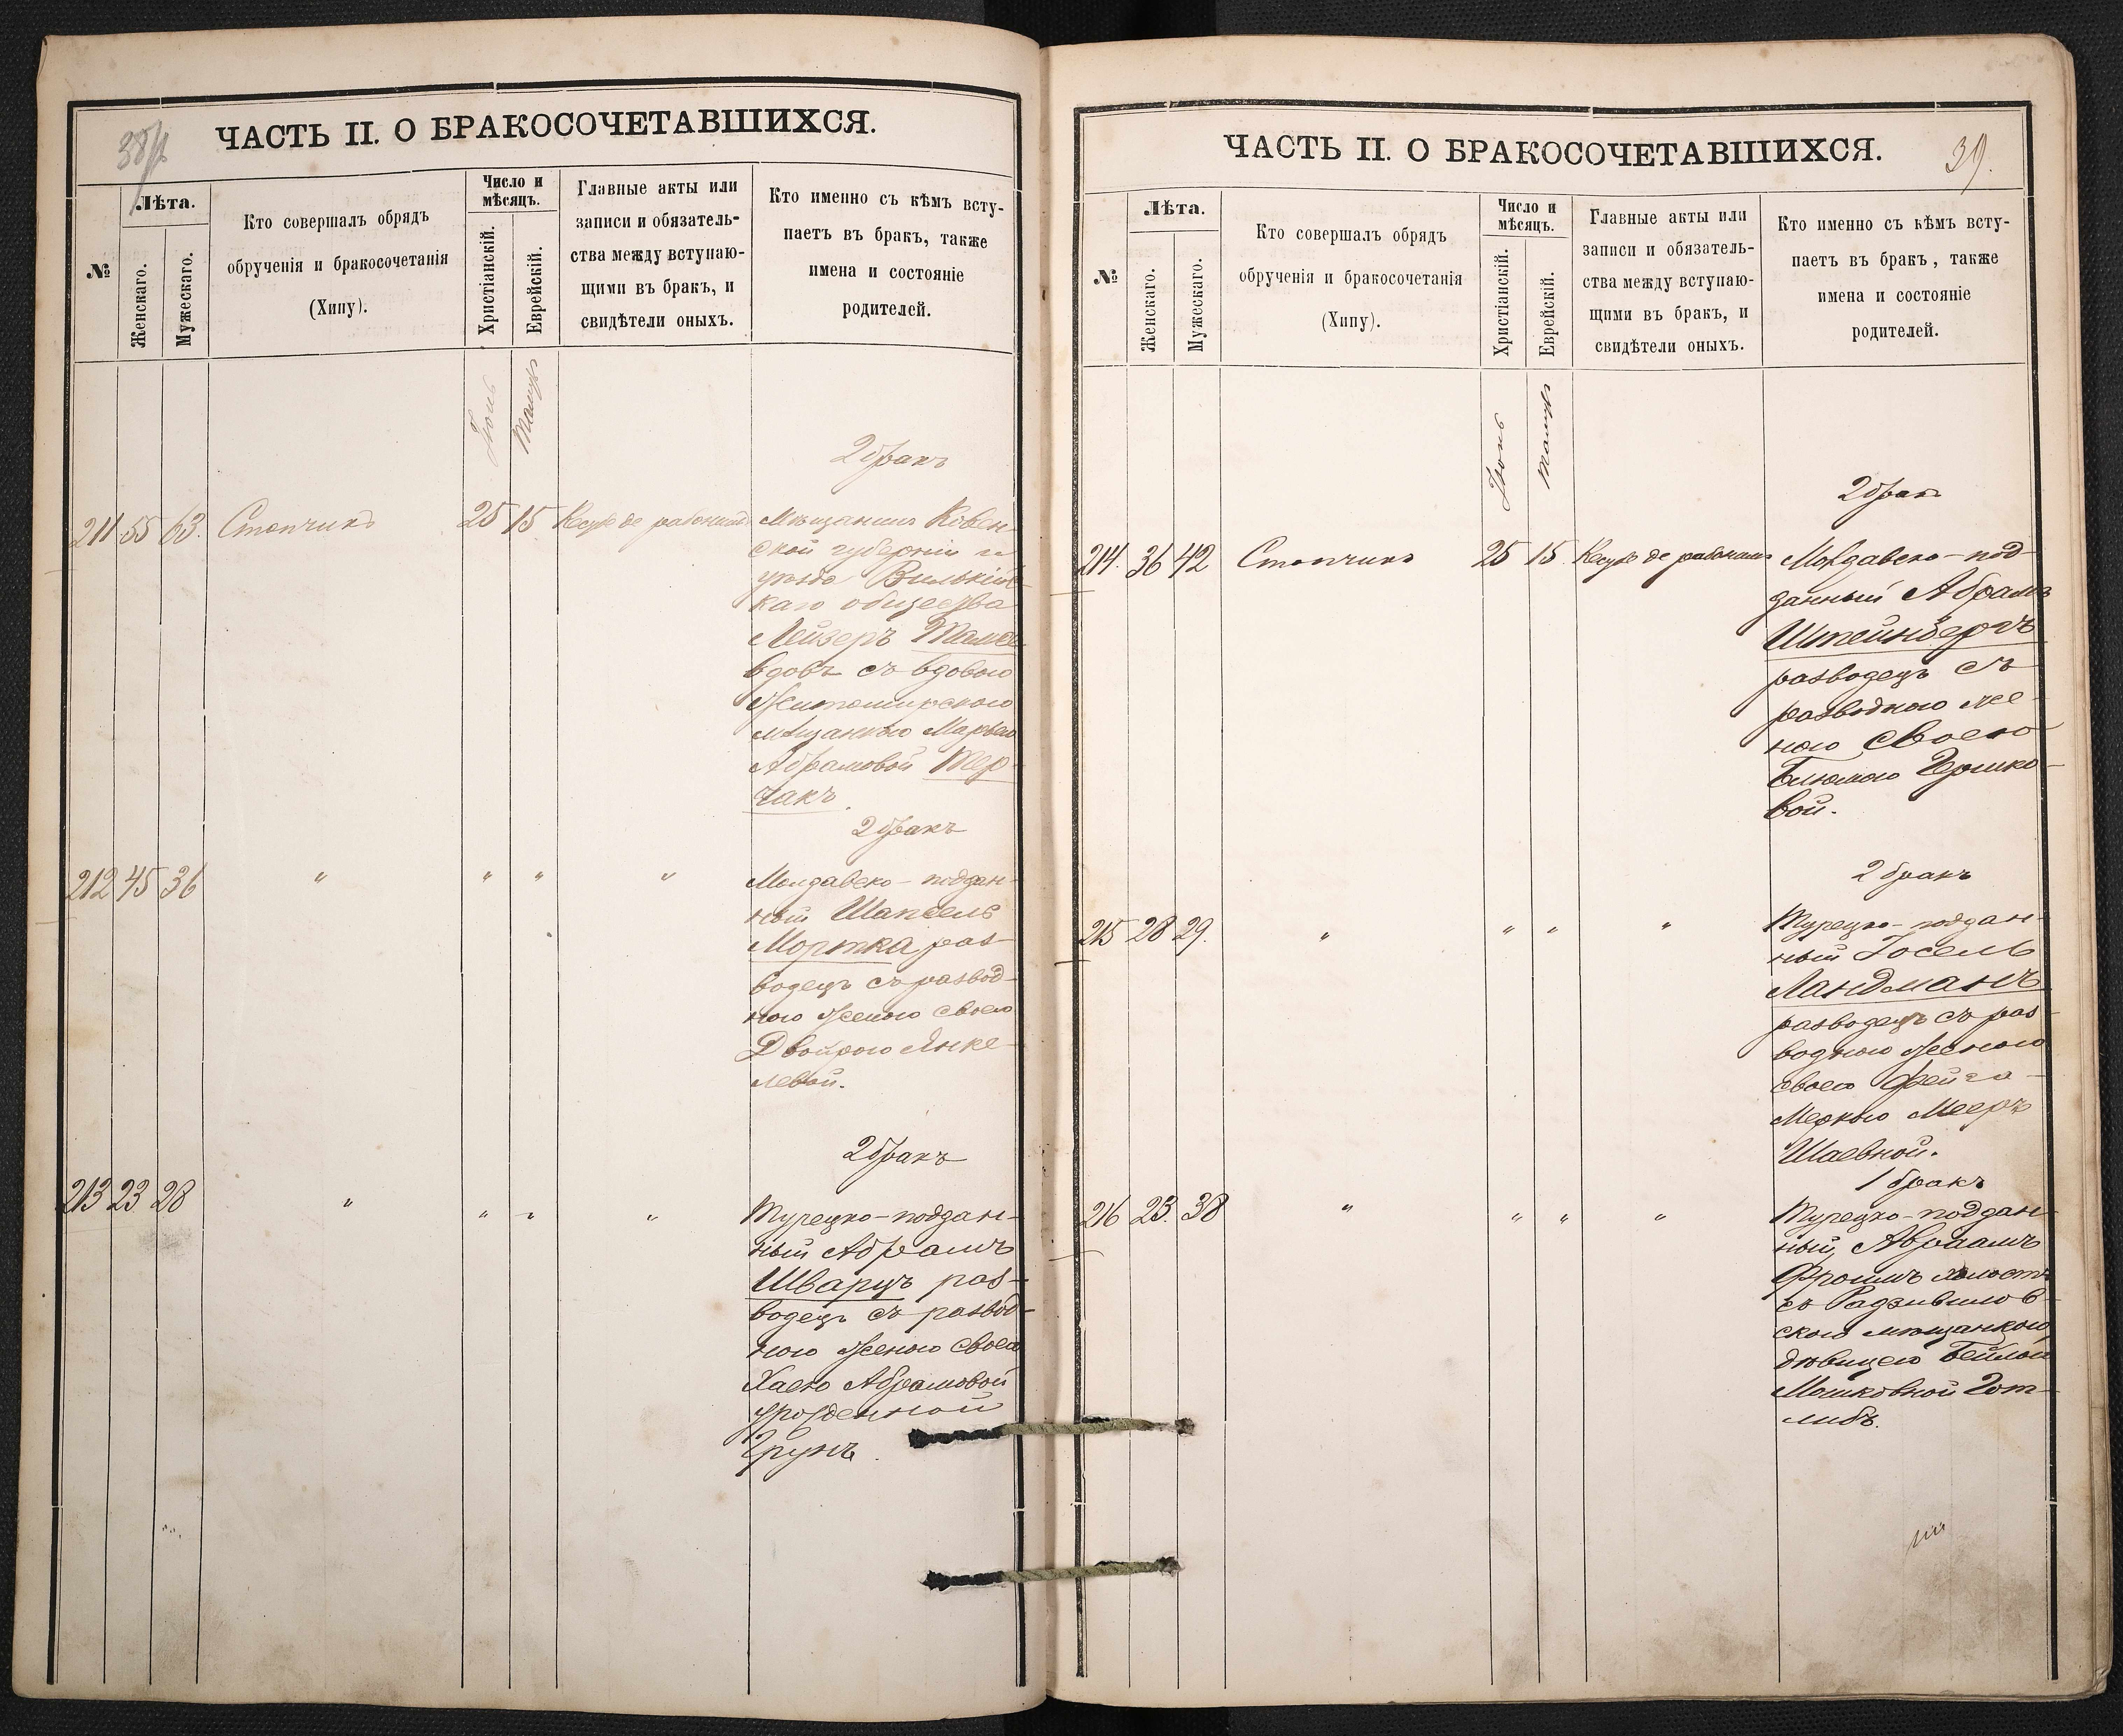 ЧАСТЬ II. О БРАКОСОЧЕТАВШИХСЯ.
№
Лѣта.
Женскаго.
Мужескаго.
Кто совершалъ обрядъ
обрученія и бракосочетанія
(Хипу).
Число и
мѣсяцъ.
Христіанскій.
Еврейскій.
Главные акты или
записи и обязатель-
ства между вступаю-
щими въ бракъ, и
свидѣтели оныхъ.
Кто именно съ кѣмъ всту-
паетъ въ бракъ, также
имена и состояніе
родителей.
Іюнь
Тамузъ
2 бракъ
211 55 63. Стопчикъ 25 15 Кесубе де рабонимъ Мѣщанинъ Ковен-
ской губерніи и
уѣзда Вилькійс-
каго общества
Лейзеръ
вдовъ съ вдовою
Житомирскою
мѣщанкою Маріею
Абрамовой Тер-
чакъ.
2 бракъ
212 45 36 " " " " Молдавско-поддан-
ный Шапсель
Мортка раз-
водецъ съ развод-
ною женою своею
Двойрою Янке-
левой.
2 бракъ
213 23 28 " " " " Турецко-поддан-
ный Абрамъ
Шварцъ раз-
водецъ съ развод-
ною женою своею
Хаею Абрамовой
урожденной
Грунъ.
ЧАСТЬ II. О БРАКОСОЧЕТАВШИХСЯ.
39.
№
Лѣта.
Женскаго.
Мужескаго.
Кто совершалъ обрядъ
обрученія и бракосочетанія
(Хипу).
Число и
мѣсяцъ.
Христіанскій.
Еврейскій.
Главные акты или
записи и обязатель-
ства между вступаю-
щими въ бракъ, и
свидѣтели оныхъ.
Кто именно съ кѣмъ всту-
паетъ въ бракъ, также
имена и состояніе
родителей.
Іюнь
Тамузъ
2 бракъ
214. 36 42 Стопчикъ 25 15 Кесубе де рабонимъ Молдавско-под-
данный Абрамъ
Штейнбергъ
разводецъ съ
разводною же-
ною своею
Блюмою Гершко-
вой.
2 бракъ
215 28 29. " " " " Турецко-поддан-
ный Іосель
Ландманъ
разводецъ съ раз-
водною женою
своею Фейга-
Меркою Мееръ
Шаевной.
1 бракъ
216 23. 38 " " " " Турецко-поддан-
ный, Авраамъ
Фроимъ холостъ
съ Радзивилов-
скою мѣщанкою,
дѣвицею Бейлою
Мошковной Гот-
либъ.